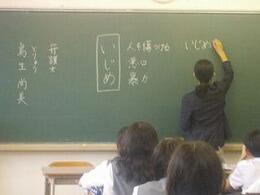 いじめ
人を傷つける
悪口
暴力
いじめ
弁護士
鳥生尚美